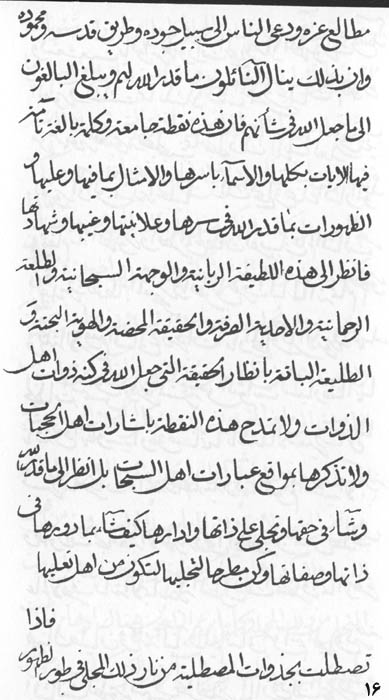 مطالع عزه ودعى الناس الى سبيل جوده وطريق قدسه ومجموده
وان بذلك ينال النائلون ما قدر الله لهم ويبلغ البالغون
الى ما جعل الله فى شأنهم فان هذه نقطة جامعة وكلمة بالغة تامة
فيها الايات بكلها والاسمآء باسرها والامثال بما فيها وعليها و
الظهورات بما قدر الله فى سرها وعلانيتها وغيبها وشهادتها
فانظر الى هذه اللطيفة الربانية والوجهة السبحانية والطلعة
الرحمانية والاحدية الصرفة والحقيقة المحضة والهوية البحتة و
الطليعة بانظار الحقيقة التى جعل الله فى كنه ذوات اهل
الذوات ولا تمدح هذه النقطة باشارات اهل الحجبات
ولا تذكرها بمواقع عبارات اهل السبحات بل انظر الى ما قدر الله
وشآء فى حقها وتجلى على ذاتها وادارها كيف شآء بما دوبرها فى
ذاتها وصفاتها وكن مطرحا لتجليها لتكون من اهل تعليها
فاذا
تصطلت بجذوات المصطلية من نار ذلك المجلى فى طور الظهور
١۶